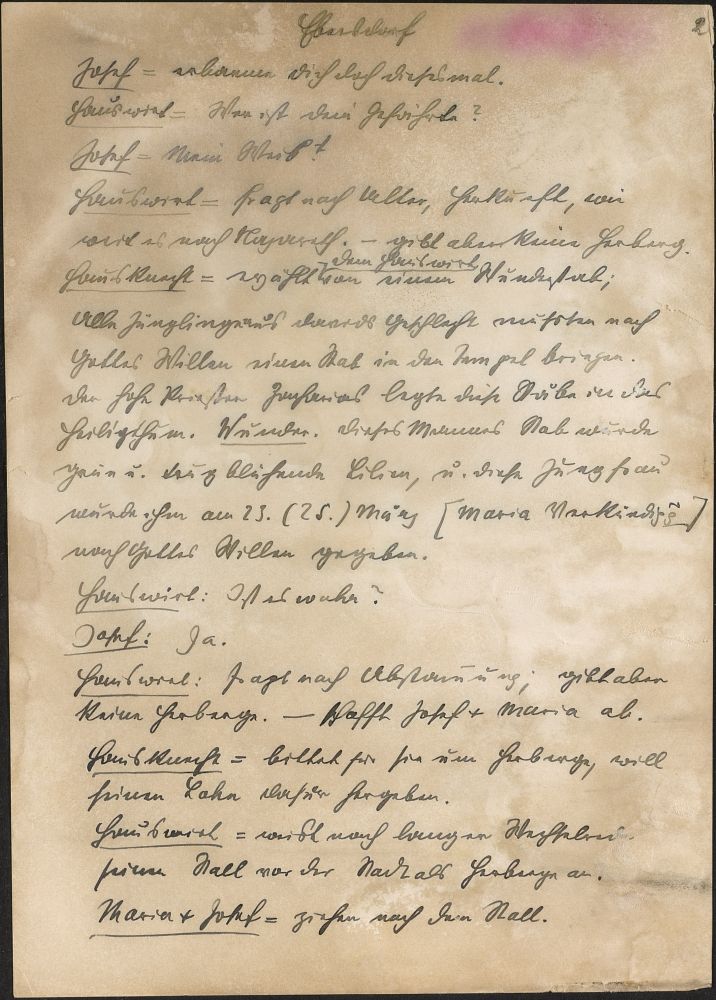 Ebersdorf
2
Josef = erbarme dich doch diesesmal.
Hauswirt = Wer ist dein Gefährte?
Josef = Mein Weib!
Hauswirt = fragt nach Alter, Herkunft, wie
weit es nach Nazareth. – gibt aber keine Herberg.
dem Hauswirt
Hausknecht = erzählt von einem Wunderstab;
Alle Jünglinge aus Davids Geschlecht mußten nach
Gottes Willen einen Stab in den Tempel bringen.
Der hohe Priester Zacharias legte diese Stäbe in das
Heiligthum. Wunder. Dieses Mannes Stab wurde
grün u. trug blühende Lilien, u. diese Jungfrau
wurde ihm am 23. (25.) März [Maria Verkündigg]
nach Gottes Willen gegeben.
Hauswirt: Ist es wahr?
Josef: Ja.
Hauswirt: fragt nach Abstammung; gibt aber
keine Herberge. — Schafft Josef + Maria ab.
Hausknecht = bittet für sie um Herberge, will
seinen Lohn dafür hergeben.
Hauswirt = weist nach langer Wechselrede
seinen Stall vor der Stadt als Herberge an.
Maria + Josef = ziehen nach dem Stall.